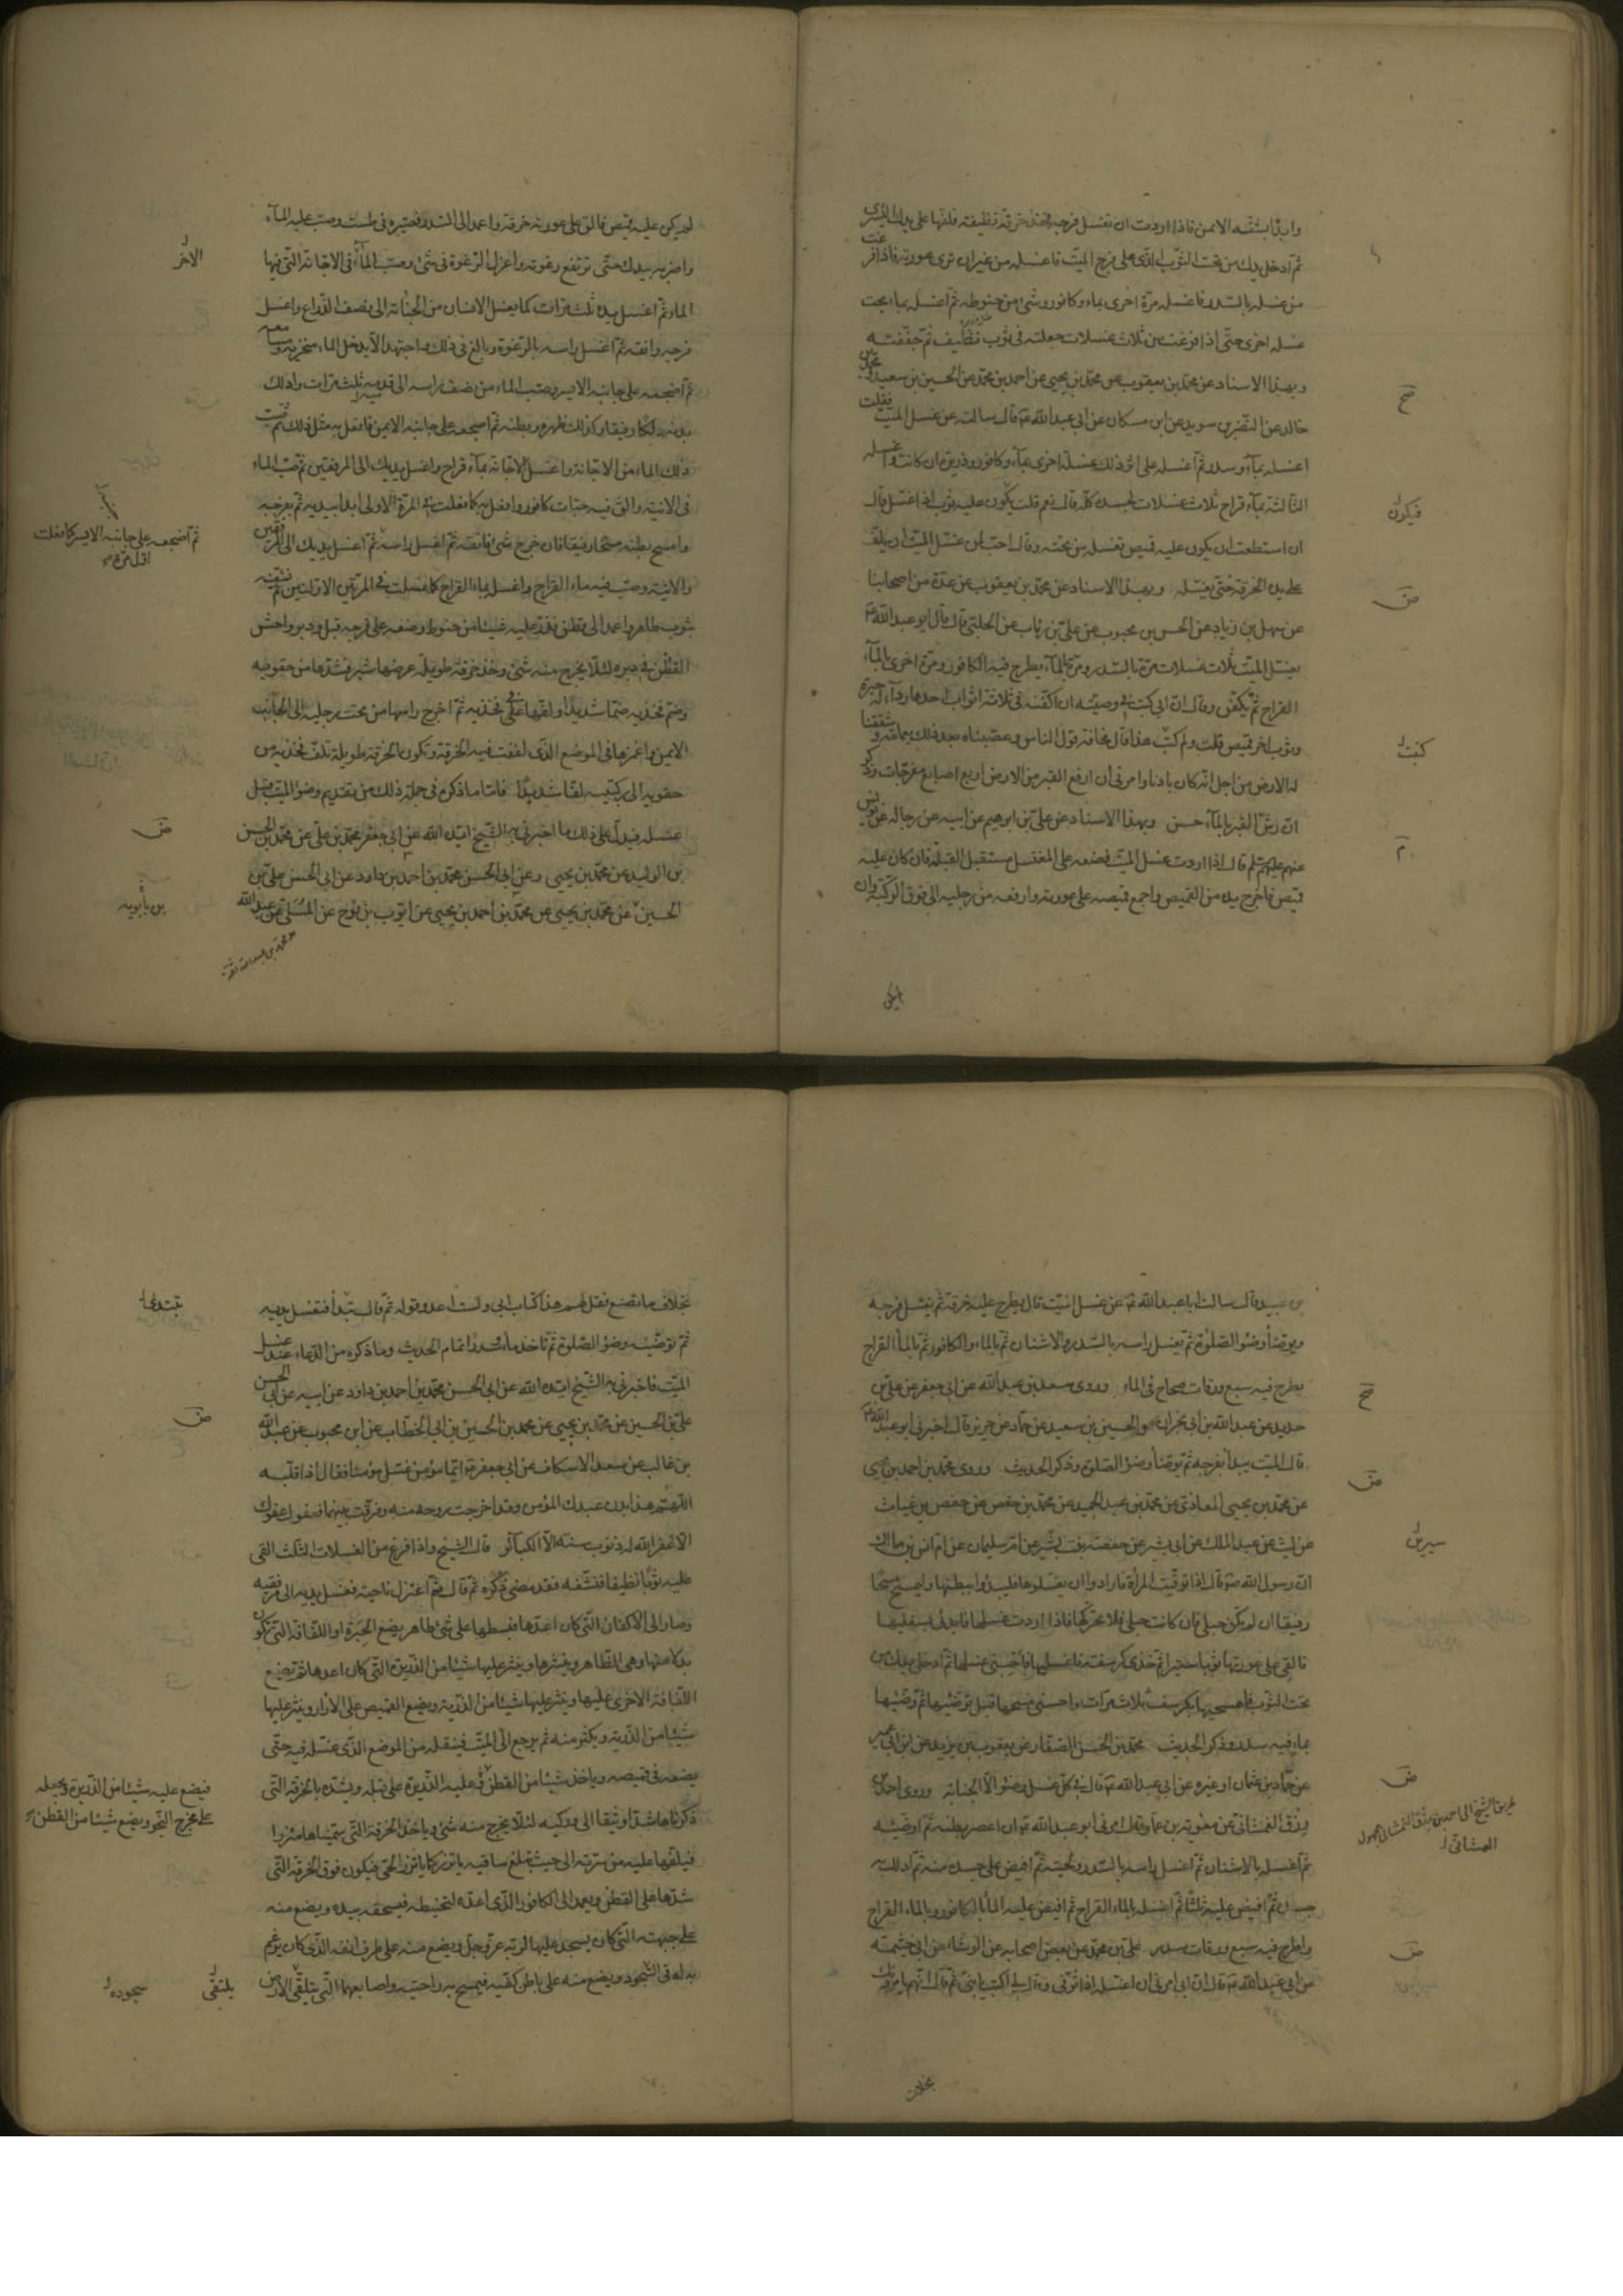 وابدأ بشقه الايمن فاذا اردت ان تغسل فرجه فخذ خرقة نظيفة فلفها على يدك اليسرى
ثم ادخل يدك من تحت الثوب الذى على فرج الميت فاغسله من غير ان ترى عورته فاذا فرغت
من غسله بالسدر فاغسله مرة اخرى بماء وكافور وشئ من حنوطه ثم اغسله بماء بحت
غسلة اخرى حتى اذا فرغت من ثلاث غسلات جعلته فى ثوب نظيف ثم جففته
وبهذا الاسناد عن محمد بن يعقوب عن محمد بن يحيى عن احمد بن محمد عن الحسين بن سعيد ومحمد بن
صح
خالد عن النضر بن سويد عن ابن مسكان عن ابى عبد الله ع قال سالته عن غسل الميت فقلت
اغسله بماء وسدر ثم اغسله على اثر ذلك غسلة اخرى بماء وكافور وذريرة ان كانت واغسله
الثالثة بماء قراح ثلاث غسلات لجسده كله قال نعم قلت يكون عليه ثوب اذا غسل قال
فيكون ل
ان استطعت ان يكون عليه قميص تغسل من تحته وقال احب لمن غسل الميت ان يلف
على يده الخرقة حتى يغسله وبهذا الاسناد عن محمد بن يعقوب عن عدة من اصحابنا
ض
عن سهل بن زياد عن الحسن بن محبوب عن على بن رئاب عن الحلبى قال قال ابو عبد الله ع
يغسل الميت ثلاث غسلات مرة بالسدر ومرة بالماء يطرح فيه الكافور ومرة اخرى بالماء
القراح ثم يكفن وقال ان ابى كتب فى وصيته ان اكفنه فى ثلاثة اثواب احدها رداء له حبرة
وثوب اخر وقميص قلت ولم كتب هذا قال مخافة قول الناس وعصبناه بعد ذلك بعمامة وشققنا
كتبت ل
له الارض من اجل انه كان بادنا وامرنى ان ارفع القبر من الارض اربع اصابع مفرجات وذكر
ان رش القبر بالماء حسن وبهذا الاسناد عن على بن ابرهيم عن ابيه عن رجاله عن يونس
عنهم عليهم السلم قال اذا اردت غسل الميت فضعه على المغتسل مستقبل القبلة فان كان عليه
قميص فاخرج يده من القميص واجمع قميصه على عورته وارفعه من رجليه الى فوق الركبة وان
لم يكن
لم يكن عليه قميص فالق على عورته خرقة واعمد الى السدر فصيره فى طست وصب عليه الماء
واضربه بيدك حتى ترتفع رغوته واعزل الرغوة فى شئ وصب الماء فى الاجانة التى فيها
الاخر ل
الماء ثم اغسل يده ثلث مرات كما يغسل الانسان من الجنابة الى نصف الذراع واغسل
فرجه وانقه ثم اغسل راسه بالرغوة وبالغ فى ذلك واجتهد الا يدخل الماء منخريه ومسامعه
ثم اضجعه على جانبه الايسر وصب الماء من نصف راسه الى قدميه ثلث مرات وادلك
بدنه دلكا رفيقا وكذلك ظهره وبطنه ثم اضجعه على جانبه الايمن فافعل به مثل ذلك ثم صب
ذلك الماء من الاجانة واغسل الاجانة بماء قراح واغسل يديك الى المرفقين ثم صب الماء
فى الانية والق فيه حبات كافور وافعل به كما فعلت فى المرة الاولى ابدا بيديه ثم بفرجه
وامسح بطنه مسحا رفيقا فان خرج شئ فانقه ثم اغسل راسه ثم اغسل يديك الى المرفقين
ثم اضجعه على جانبه الايسر كما فعلت
اول مرة صح
والانية وصب فيه ماء القراح واغسله بماء القراح كما غسلت فى المرتين الاولتين ثم نشفه
بثوب طاهر واعمد الى قطن فذر عليه شيئا من حنوط وضعه على فرجه قبل ودبر واحش
القطن فى دبره لئلا يخرج منه شئ وخذ خرقة طويلة عرضها شبر فشدها من حقويه
وضم فخذيه ضما شديدا ولفها فى فخذيه ثم اخرج راسها من تحت رجليه الى الجانب
الايمن واغمزها فى الموضع الذى لففت فيه الخرقة وتكون الخرقة طويلة تلف فخذيه من
حقويه الى ركبتيه لفا شديدا فاما ما ذكره فى جملة ذلك من تقديم وضو الميت قبل
غسله فيدل على ذلك ما اخبرنى به الشيخ ايده الله عن ابى جعفر محمد بن على عن محمد بن الحسن
ض
بن الوليد عن محمد بن يحيى وعن ابى الحسن محمد بن احمد بن داود عن ابى الحسن على بن
بن بابويه
الحسين عن محمد بن يحيى عن محمد بن احمد بن يحيى عن ايوب بن نوح عن المسلى عن عبد الله
بن عبيد قال سالت ابا عبد الله ع عن غسل الميت قال يطرح عليه خرقة ثم يغسل فرجه
ويوضأ وضو الصلوة ثم يغسل راسه بالسدر والاشنان ثم بالماء والكافور ثم بالماء القراح
يطرح فيه سبع ورقات صحاح فى الماء وروى سعد بن عبد الله عن ابى جعفر عن على بن
صح
حديد عن عبد الله بن ابى نجران والحسين بن سعيد عن حماد عن حريز قال اخبرنى ابو عبد الله ع
قال الميت يبدأ بفرجه ثم توضأ وضو الصلوة وذكر الحديث وروى محمد بن احمد بن يحيى
ض
عن محمد بن يحيى المعاذى عن محمد بن عبد الحميد عن محمد بن حفص عن حفص بن غياث
عن ليث عن عبد الملك عن ابى بشير عن حفصة بنت بشير عن ام سليمان عن ام انس بن مالك
سيرين ل
ان رسول الله ص قال اذا توفيت المرأة فارادوا ان يغسلوها فليبدؤا ببطنها وليمسح مسحا
رفيقا ان لم تكن حبلى فان كانت حبلى فلا تحركها فاذا اردت غسلها فابدئى بسفليها
فالقى على عورتها ثوبا ستيرا ثم خذى كرسفة فاغسليها فاحسنى غسلها ثم ادخلى يدك من
تحت الثوب فامسحيها بكرسف ثلاث مرات واحسنى مسحها قبل ان توضئيها ثم وضئيها
بماء فيه سدر وذكر الحديث محمد بن الحسن الصفار عن يعقوب بن يزيد عن ابن ابى عمير
عن حماد بن عثمان او غيره عن ابى عبد الله ع قال فى كل غسل وضو الا الجنابة وروى احمد بن
ض
رزق الغمشانى عن معوية بن عمار قال امرنى ابو عبد الله ع ان اعصر بطنه ثم اوضئه
ثم اغسله بالاشنان ثم اغسل راسه بالسدر ولحيته ثم افيض على جسده منه ثم ادلك به
جسده ثم افيض عليه ثلثا ثم اغسله بالماء القراح ثم افيض عليه الماء بالكافور وبالماء القراح
واطرح فيه سبع ورقات سدر على بن محمد عن بعض اصحابه عن الوشاء عن ابى خيثمة
ض
عن ابى عبد الله ع قال ان ابى امرنى ان اغسله اذا توفى وقال لى اكتب يا بنى ثم قال انهم يامرونك
بخلاف
بخلاف ما تصنع فقل لهم هذا كتاب ابى ولست اعدو قوله ثم قال تبدأ فتغسل يديه
تبتدى ل
ثم توضئه وضو الصلوة ثم تاخذ ماء وسدرا تمام الحديث وما ذكره من الدعاء عند غسل
الميت فاخبرنى به الشيخ ايده الله عن ابى الحسن محمد بن احمد بن داود عن ابيه عن ابى الحسن
على بن الحسين عن محمد بن يحيى عن محمد بن الحسين بن ابى الخطاب عن ابن محبوب عن عبد الله
ض
بن غالب عن سعد الاسكاف عن ابى جعفر ع قال ايما مؤمن غسل مؤمنا فقال اذا قلبه
اللهم هذا بدن عبدك المؤمن وقد اخرجت روحه منه وفرقت بينهما فعفوك عفوك
الا غفر الله له ذنوب سنة الا الكبائر قال الشيخ واذا فرغ من الغسلات الثلث القى
عليه ثوبا نظيفا فنشفه فقد مضى ذكره ثم قال ثم اعتزل ناحية فغسل يديه الى مرفقيه
وصار الى الاكفان التى كان اعدها فبسطها على شئ طاهر يضع الحبرة او اللفافة التى تكون
بدلا منها وهى الظاهر وينشرها وينثر عليها شيئا من الذريرة التى كان اعدها ثم تضع
اللفافة الاخرى عليها وينثر عليها شيئا من الذريرة ويضع القميص على الازار وينثر عليها
شيئا من الذريرة ويكثر منه ثم يرجع الى الميت فينقله من الموضع الذى غسله فيه حتى
يضعه فى قميصه وياخذ شيئا من القطن وعليه الذريرة على قبله ويشده بالخرقة التى
فيضع عليه شيئا من الذريرة ويجعله
على مخرج النجو ويضع شيئا من القطن
ذكرناها شدا وثيقا الى وركيه لئلا يخرج منه شئ وياخذ الخرقة التى سميناها مئزرا
فيلفها عليه من سرته الى حيث تبلغ ساقيه ياتزر كما ياتزر الحى فيكون فوق الخرقة التى
شدها على القطن ويعمد الى الكافور الذى اعده لتحنيطه فيسحقه بيده ويضع منه
على جبهته التى كان يسجد عليها لربه عز وجل ويضع منه على طرف انفه الذى كان يرغم
به له فى السجود ويضع منه على باطن كفيه فيمسح به راحتيه واصابعهما التى يتلقى الارض
يلتقى ل
سجوده ل